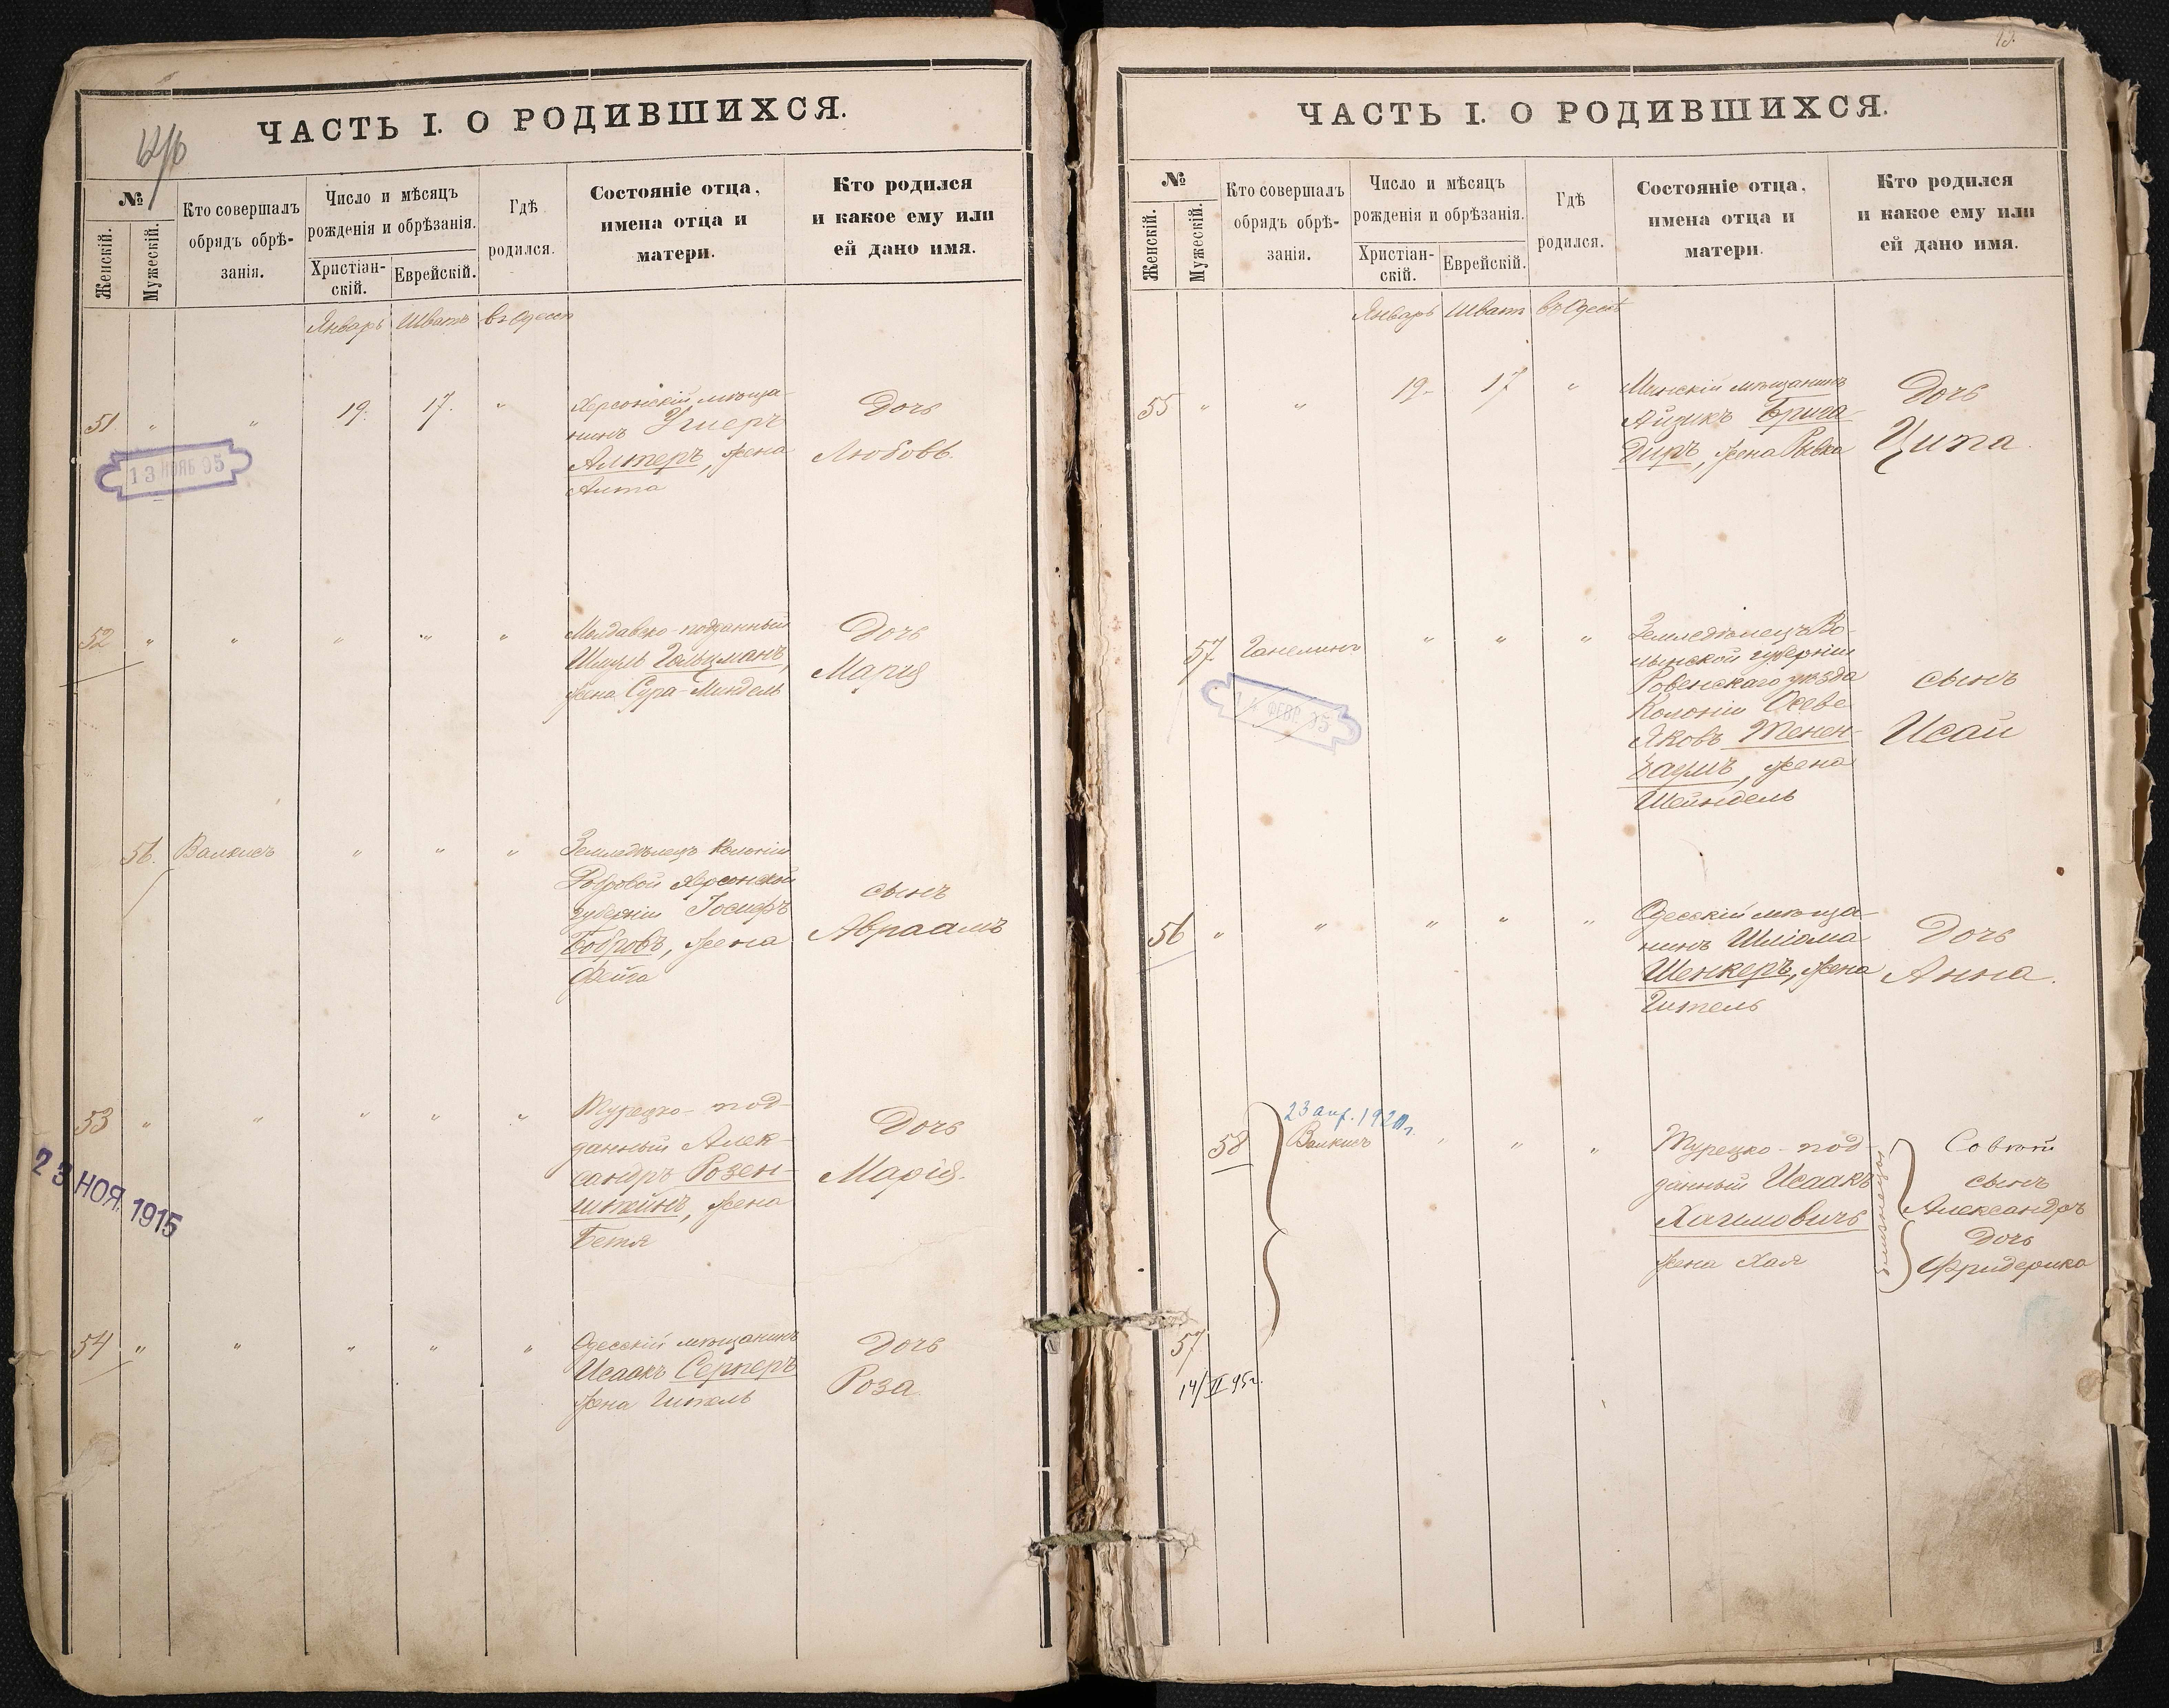 ЧАСТЬ I. О РОДИВШИХСЯ.
№
Женскій.
Мужескій.
Кто совершалъ
обрядъ обрѣ-
занія.
Число и мѣсяцъ
рожденія и обрѣзанія.
Христіан-
скій.
Еврейскій.
Гдѣ
родился.
Состояніе отца,
имена отца и
матери.
Кто родился
и какое ему или
ей дано имя.
Январь Шватъ въ Одессѣ
51 " " 19. 17. "
Херсонскій мѣща-
нинъ Ушеръ
Алтеръ, жена
Анта
Дочь
Любовь.
13 НОЯБ 95
52 " " " " "
Молдавско-подданный
Шмуль Гольцманъ,
жена Сура-Миндель
Дочь
Марія
56. Валкисъ " " "
Земледѣлецъ Колоніи
Бобровой Херсонской
губерніи Іосифъ
Бобровъ, жена
Фейга
сынъ
Авраамъ
53 " " " " "
Турецко-под-
данный Алек-
сандръ Розен-
штейнъ, жена
Бетя
Дочь
Марія.
23 НОЯ 1915
54 " " " " "
Одесскій мѣщанинъ
Исаакъ Серперъ
жена Гитель
Дочь
Роза.
13.
ЧАСТЬ I. О РОДИВШИХСЯ.
№
Женскій.
Мужескій.
Кто совершалъ
обрядъ обрѣ-
занія.
Число и мѣсяцъ
рожденія и обрѣзанія.
Христіан-
скій.
Еврейскій.
Гдѣ
родился.
Состояніе отца,
имена отца и
матери.
Кто родился
и какое ему или
ей дано имя.
Январь Шватъ въ Одессѣ
55 " " 19. 17 "
Минскій мѣщанинъ
Айзикъ Брига-
диръ, жена Ривка
Дочь
Ципа.
57 Ганелинъ " " "
Земледѣлецъ Во-
лынской губерніи
Ровенскаго уѣзда
Колоніи Осове
Яковъ Тенен-
баумъ, жена
Шейндель
сынъ
Исай
14 ФЕВР 95
56 " " " " "
Одесскій мѣща-
нинъ Шліома
Шенкеръ, жена
Гитель
Дочь
Анна.
23 апр. 1920 г.
58 Валкисъ " " "
Турецко-под-
данный Исаакъ
Хаимовичъ
жена Хая
близнецы
сынъ
Александръ
Дочь
Фридерика
57
14/II 95 г.